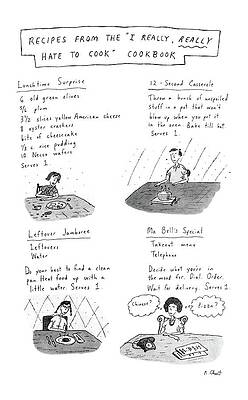 RECIPES FROM THE "I REALLY, REALLY
HATE TO COOK" COOKBOOK
Lunchtime Surprise
6 old green olives
3/4 plum
3 1/2 slices yellow American cheese
8 oyster crackers
bits of cheesecake
1/2 c. rice pudding
10 Necco wafers
Serves 1.
12-Second Casserole
Throw a bunch of unspoiled
stuff in a pot that won't
blow up when you put it
in the oven. Bake till hot.
Serves 1.
Leftover Jamboree
Leftovers
Water
Do your best to find a clean
pan. Heat food up with a
little water. Serves 1.
Ma Bell's Special
Takeout menu
Telephone
Decide what you're in
the mood for. Dial. Order.
Wait for delivery. Serves 1.
Chinese?
Pizza?
R. Chast